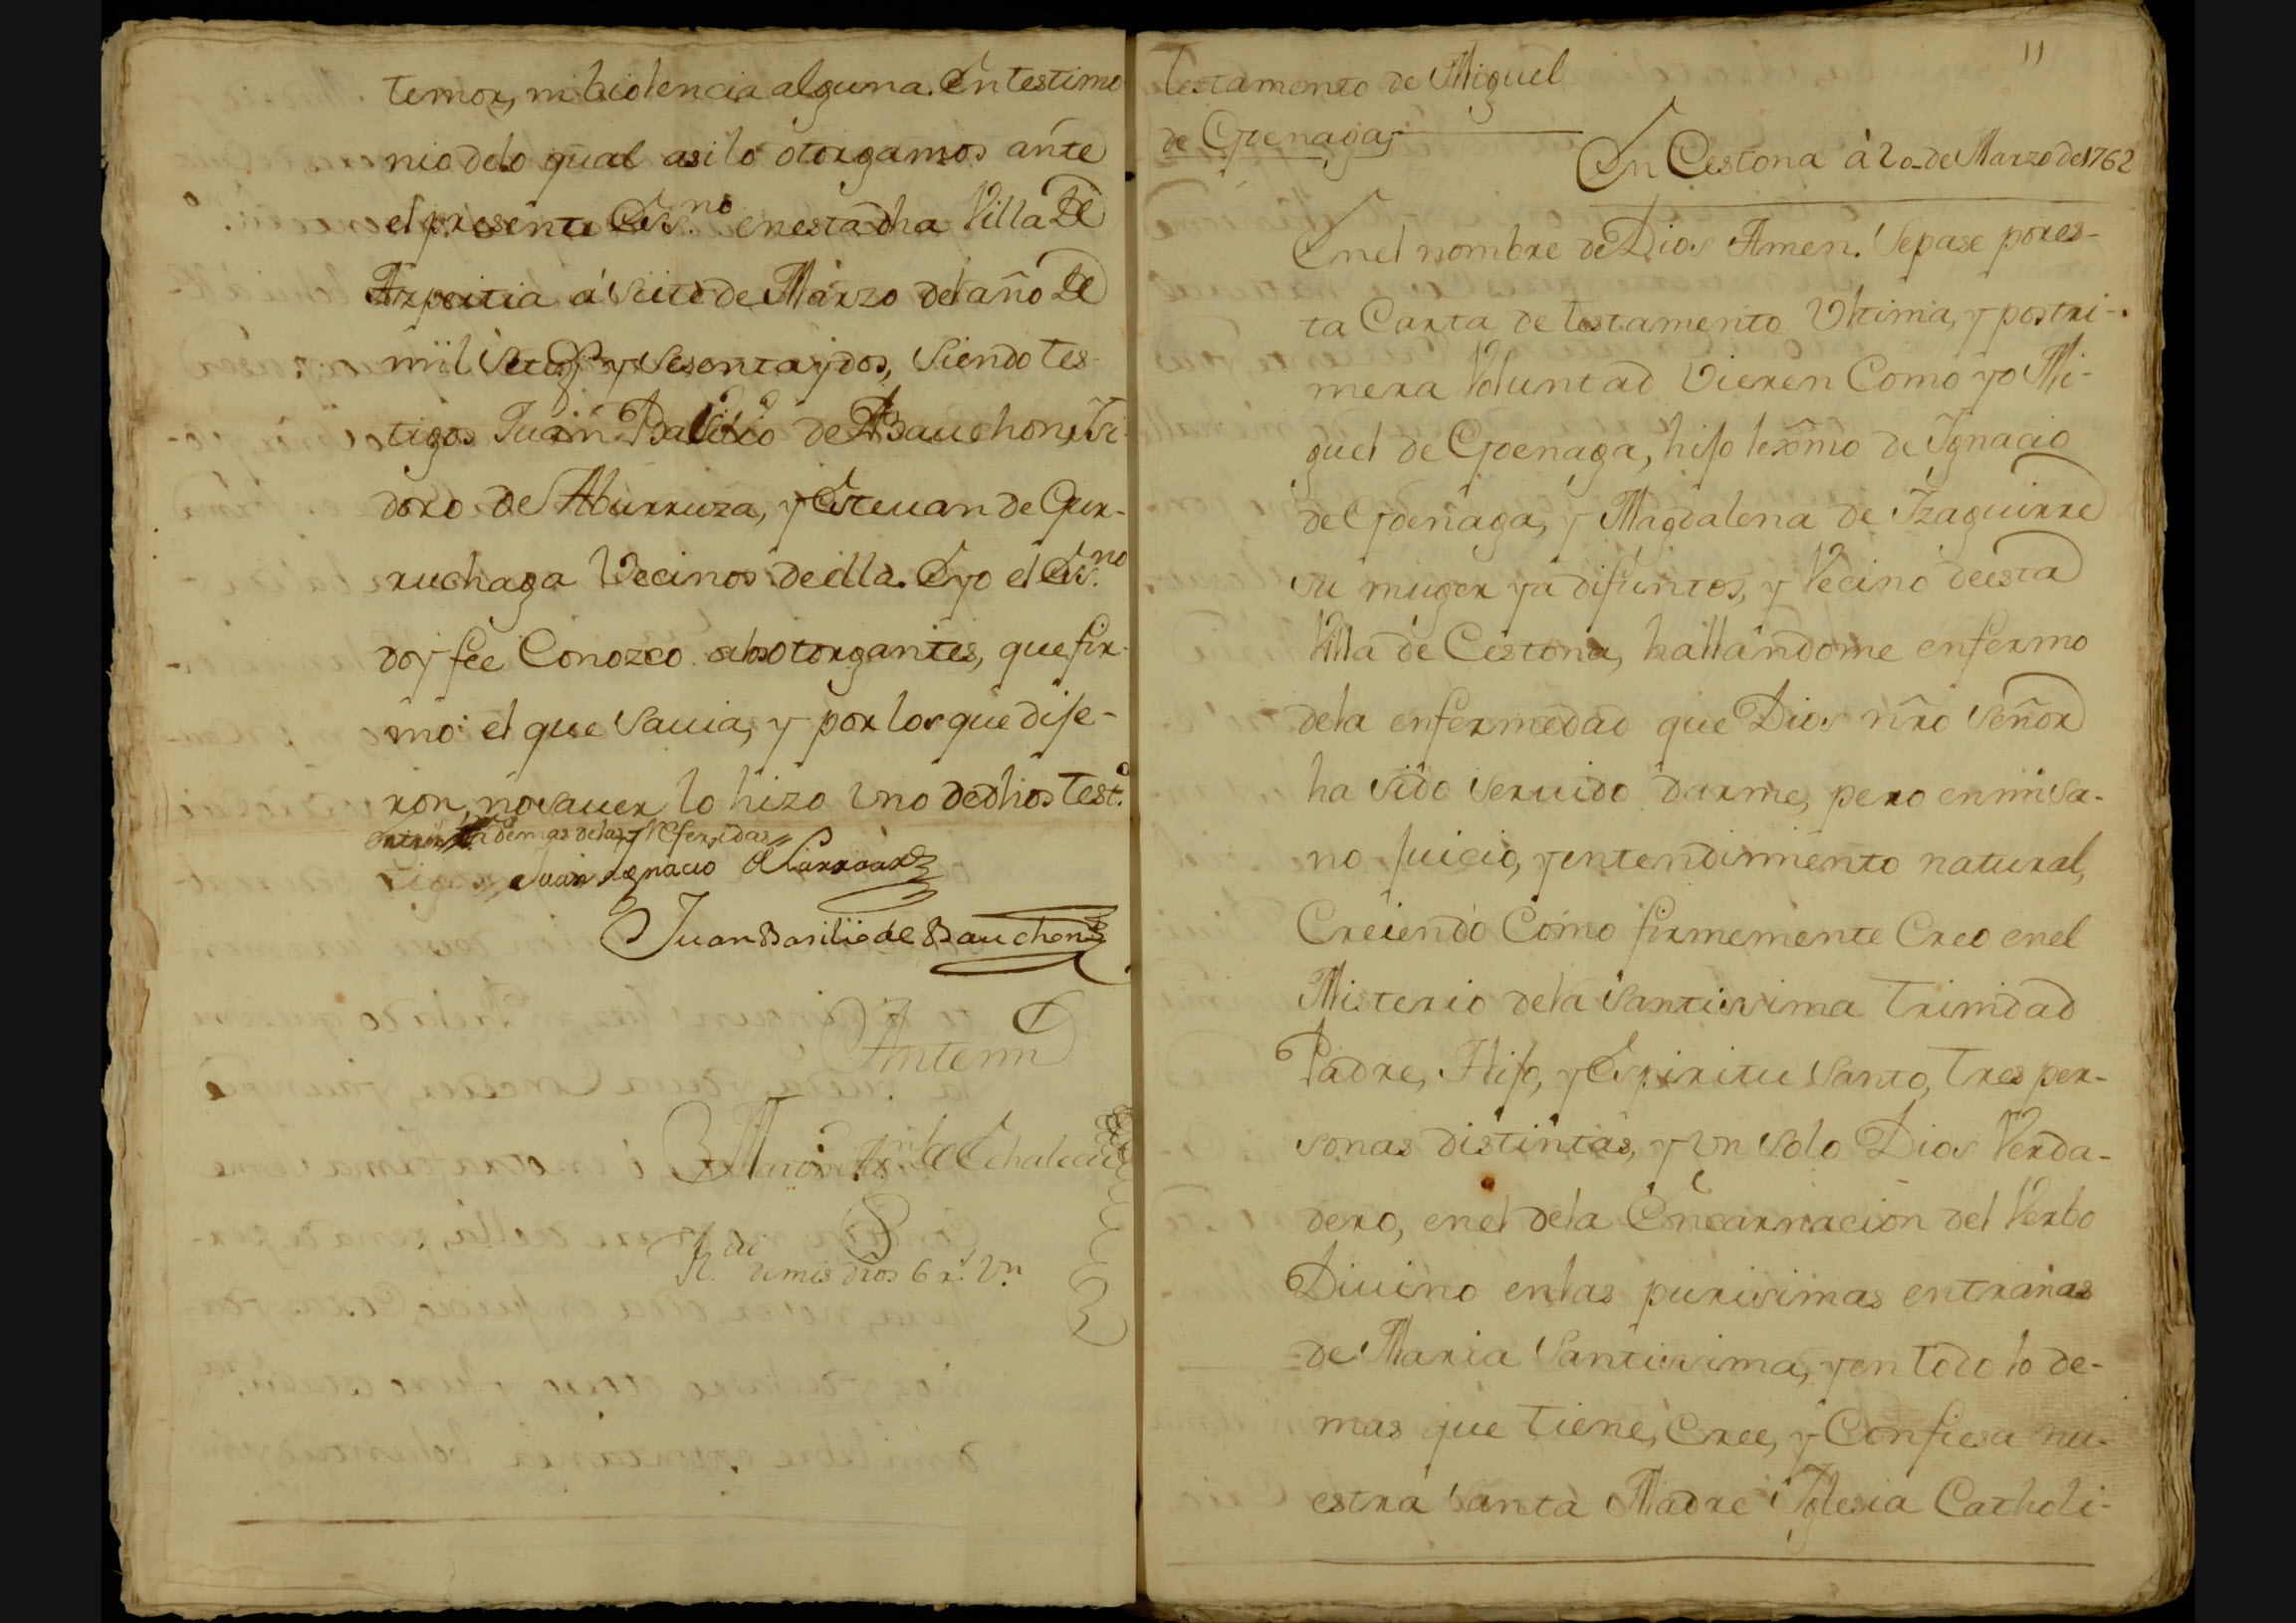 temor, ni biolencia alguna. En testimo
nio delo qual asi lo otorgamos ante
el presente Ess.no en esta dha Villa de
Azpeitia á siete de Marzo del año de
mil setezs y sesenta y dos, siendo tes-
tigos Juan Basilio de Bauchon, Isi-
doro de Aburruza, y Estevan de Gur-
ruchaga Vecinos de ella. E yo el Ess.no
doy fee Conozco alos otorgantes, que fir-
mó el que savia, y por los que dije-
ron, no saver lo hizo uno de dhos test.o
ademas delas referidas
Juan Ignacio
Juan Basilio de Bauchon
Antemi
R.di demis dros 6 r.s Vn
11
Testamento de Miguel
de Goenaga
En Cestona à 20 de Marzo de 1762
En el nombre de Dios Amen. Sepase por es-
ta Carta de testamento Ultima, y postri-
mera Voluntad vieren Como yo Mi-
guel de Goenaga, hijo lexmo de Ignacio
de Goenaga, y Magdalena de Izaguirre
su muger ya difuntos, y Vecino de esta
Villa de Cestona, hallandome enfermo
dela enfermedad que Dios nro Señor
ha sido servido darme, pero en mi sa-
no juicio, y entendimiento natural,
Creiendo Como firmemente Creo en el
Misterio dela Santissima Trinidad
Padre, Hijo, y Espiritu Santo, tres per-
sonas distintas, y un solo Dios Verda-
dero, en el dela Encarnacion del Verbo
Divino en las purisimas entrañas
de Maria Santissima, y en todo lo de-
mas que tiene, Cree, y Confiesa nu-
estra Santa Madre Iglesia Catholi-